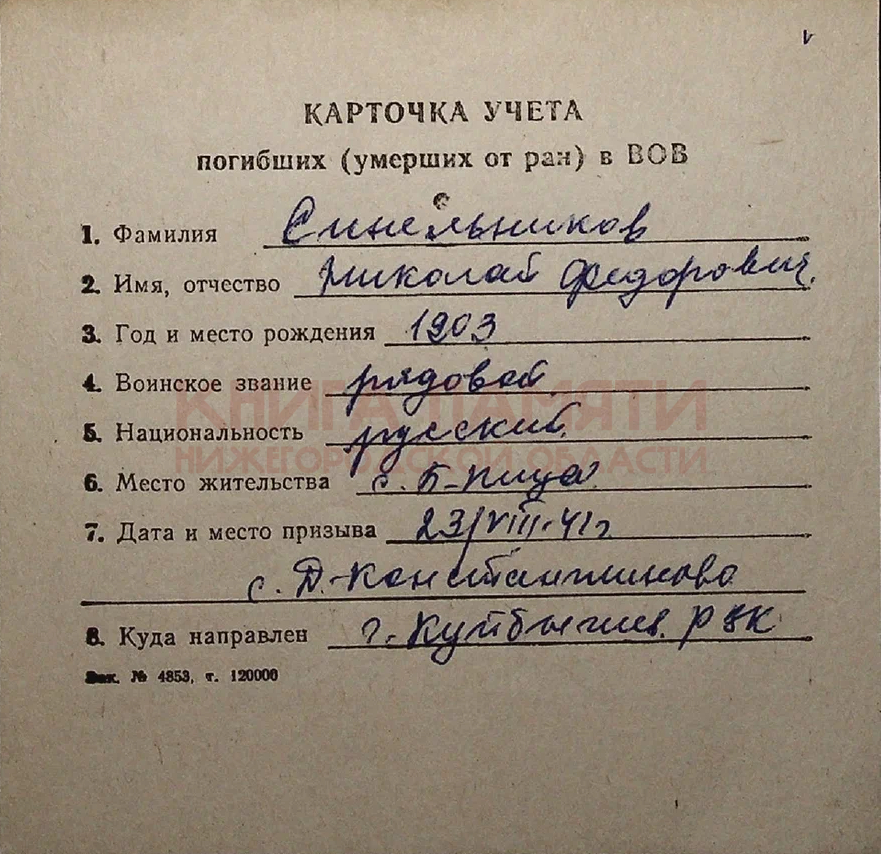 v
КАРТОЧКА УЧЕТА
погибших (умерших от ран) в ВОВ
1. Фамилия Синельников
2. Имя, отчество Николай Федорович.
3. Год и место рождения 1903
4. Воинское звание рядовой
КНИГА ПАМЯТИ
5. Национальность русский
НИЖЕГОРОДСКОЙ ОБЛАСТИ
6. Место жительства с. Б-Пица
7. Дата и место призыва 23/VIII-41г
с. Д-Константиново
8. Куда направлен г. Куйбышев. РВК
Зак. № 4853, т. 120000